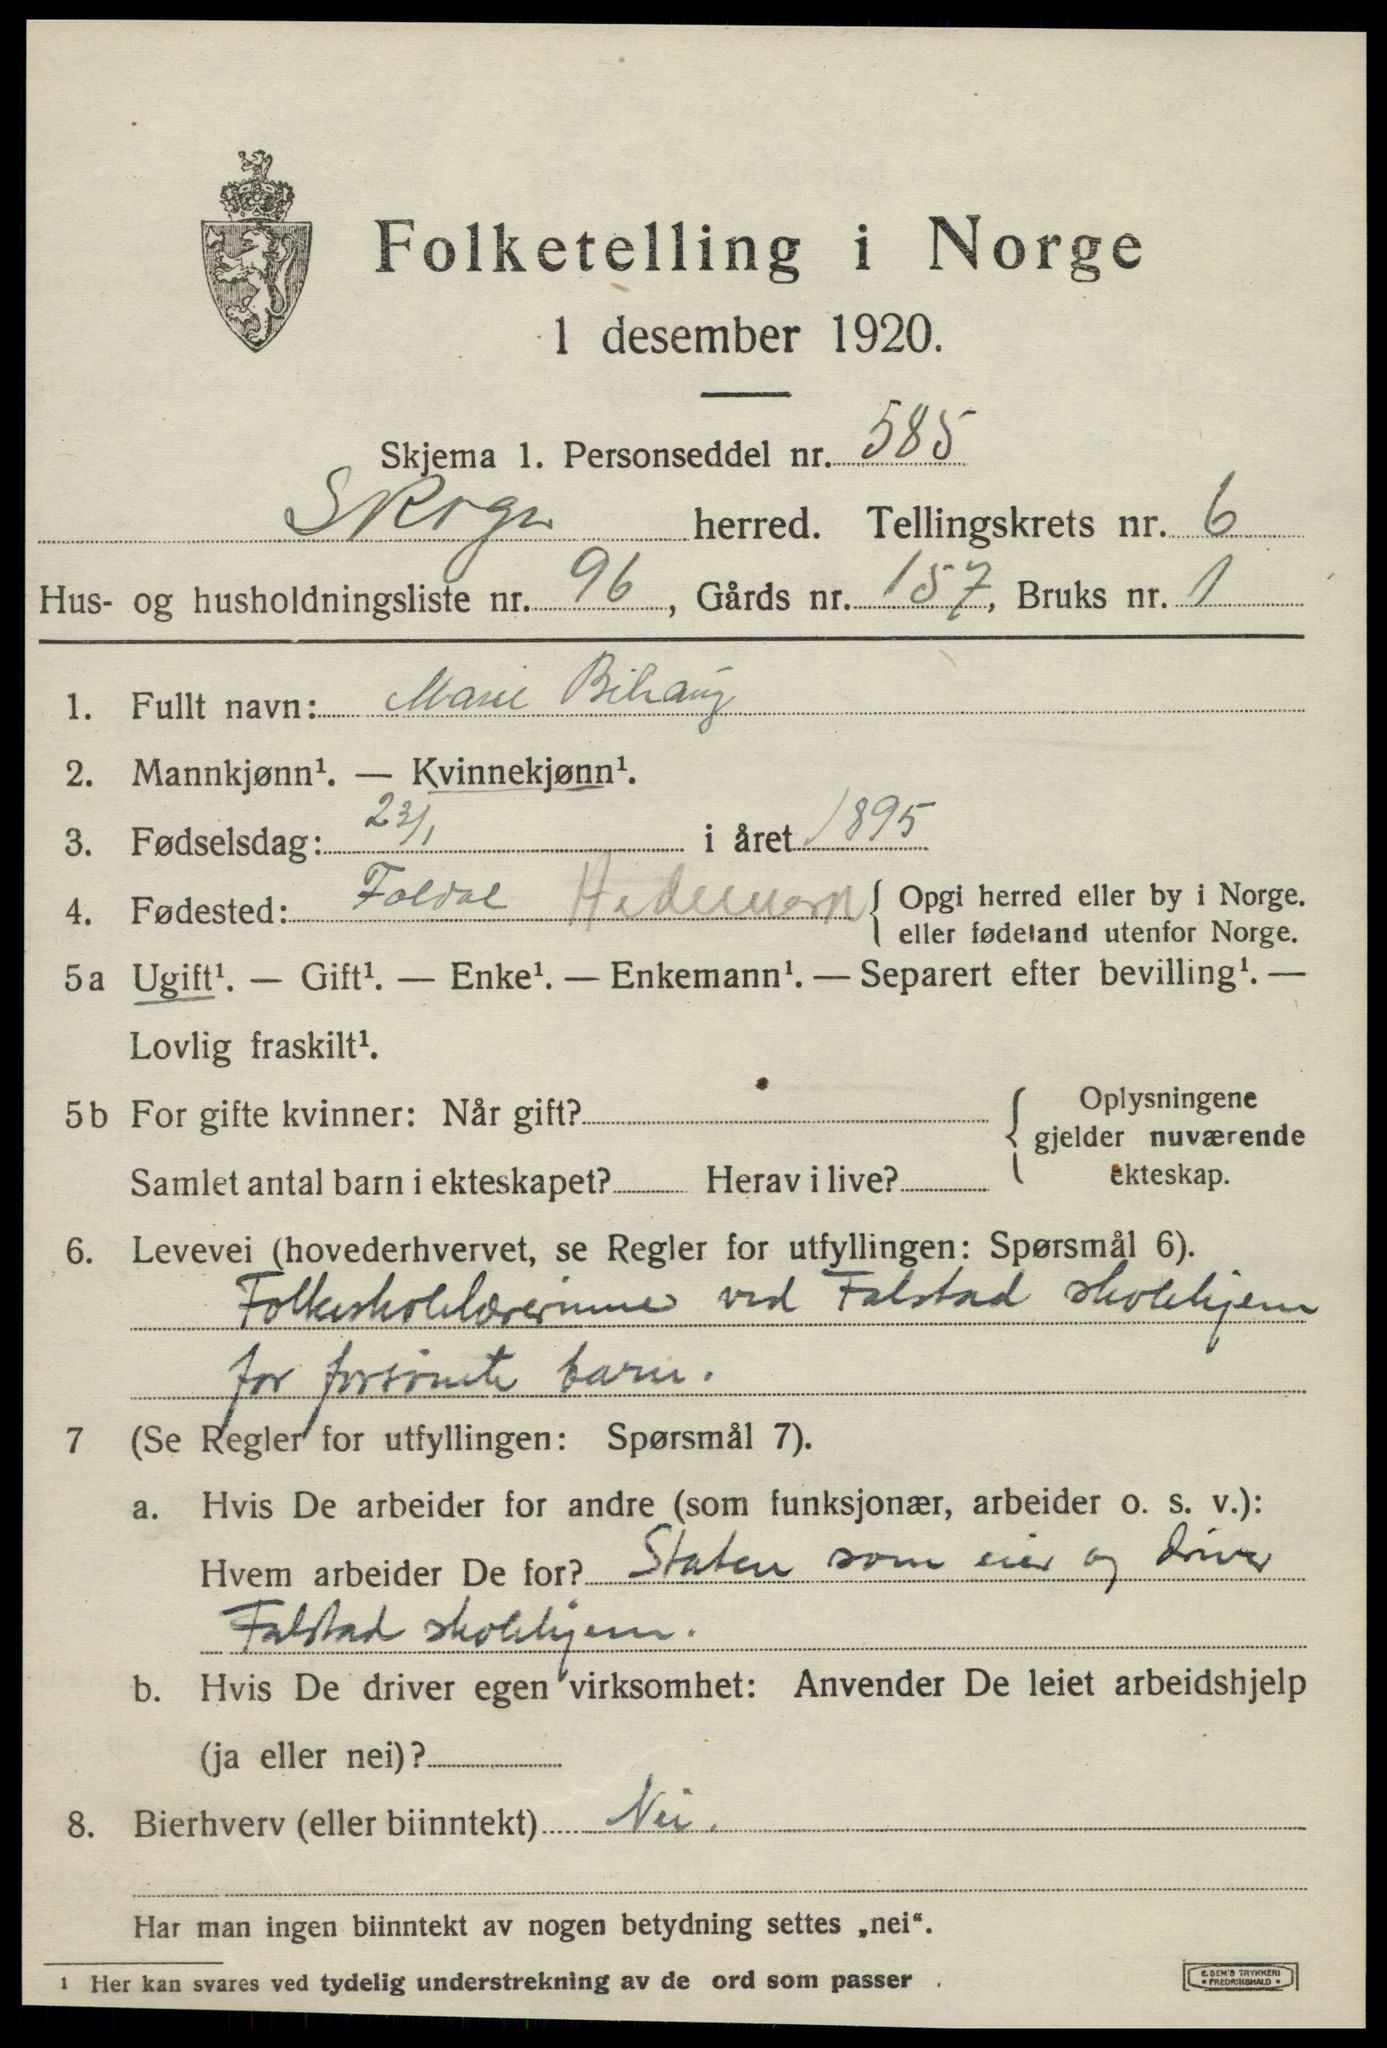 Folketelling i Norge
1 desember 1920.
Skjema 1. Personseddel nr. 585
Skogn herred. Tellingskrets nr. 6
Hus- og husholdningsliste nr. 96, Gårds nr. 157, Bruks nr. 1
1. Fullt navn: Marie Bihaug
2. Mannkjønn¹. — Kvinnekjønn¹.
3. Fødselsdag: 23/1 i året 1895
4. Fødested: Foldal Hedemark { Opgi herred eller by i Norge.
eller fødeland utenfor Norge.
5a Ugift¹. — Gift¹. — Enke¹. — Enkemann¹. — Separert efter bevilling¹. —
Lovlig fraskilt¹.
5b For gifte kvinner: Når gift?
Samlet antal barn i ekteskapet? Herav i live?
{ Oplysningene
gjelder nuværende
ekteskap.
6. Levevei (hovederhvervet, se Regler for utfyllingen: Spørsmål 6).
Folkeskolelærerinne ved Falstad skolehjem
for forsømte barn.
7 (Se Regler for utfyllingen: Spørsmål 7).
a. Hvis De arbeider for andre (som funksjonær, arbeider o. s. v.):
Hvem arbeider De for? Staten som eier og driver
Falstad skolehjem.
b. Hvis De driver egen virksomhet: Anvender De leiet arbeidshjelp
(ja eller nei)?
8. Bierhverv (eller biinntekt) Nei.
Har man ingen biinntekt av nogen betydning settes „nei“.
¹ Her kan svares ved tydelig understrekning av de ord som passer.
E. SEM'S TRYKKERI
• FREDRIKSHALD •